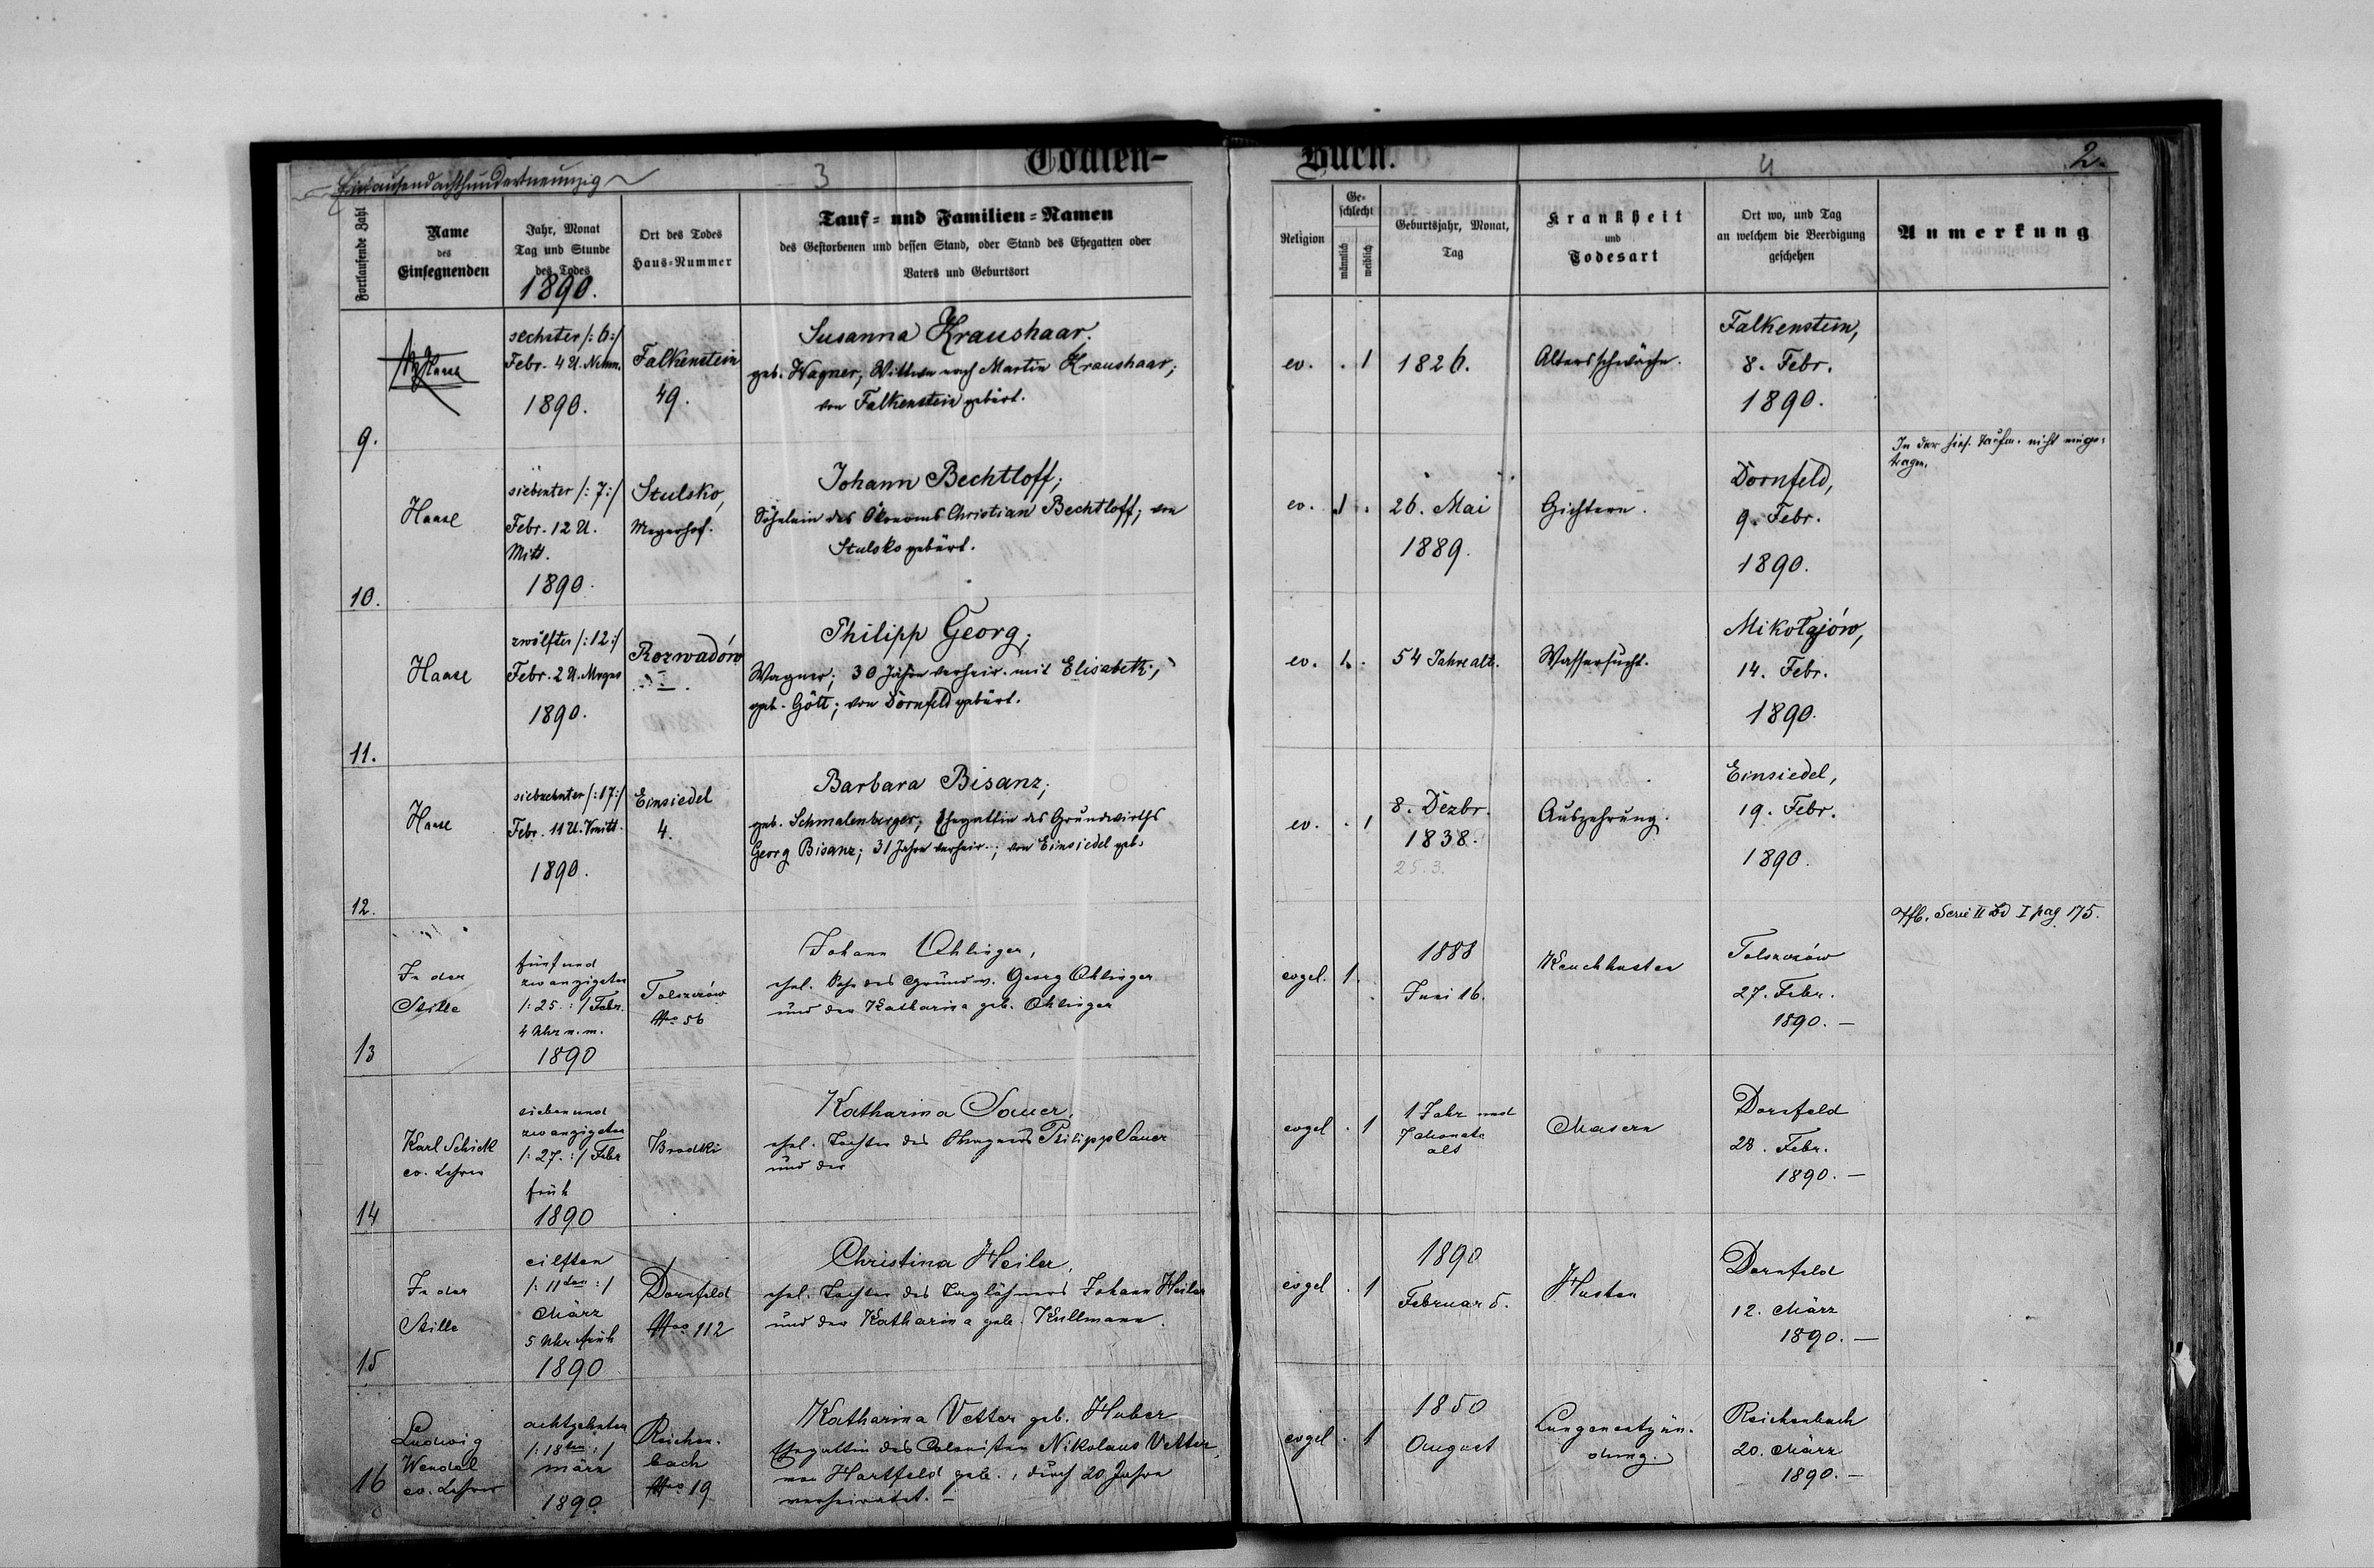 Eintausendachthundertneunzig
3
Todten-
Buch.
4
2.
Fortlaufende Zahl
Name
des
Einsegnenden
Jahr, Monat
Tag und Stunde
des Todes
1890.
Ort des Todes
Haus-Nummer
Tauf- und Familien-Namen
des Gestorbenen und dessen Stand, oder Stand des Ehegatten oder
Vaters und Geburtsort
Religion
Ge-
schlecht
männlich
weiblich
Geburtsjahr, Monat,
Tag
Krankheit
und
Todesart
Ort wo, und Tag
an welchem die Beerdigung
geschehen
Anmerkung
9.
Haase
sechster /: 6 :/
Febr. 4 U. Nchm.
1890.
Falkenstein
49.
Susanna Kraushaar,
geb. Wagner; Wittwe nach Martin Kraushaar;
von Falkenstein gebürt.
ev.
. 1
1826.
Altersschwäche.
Falkenstein,
8. Febr.
1890.
10.
Haase
siebenter /: 7 :/
Febr. 12 U.
Mitt.
1890.
Stulsko,
Meyerhof.
Johann Bechtloff;
Söhnlein des Ökonoms Christian Bechtloff; von
Stulsko gebürt.
ev.
1 .
26. Mai
1889.
Gichtern.
Dornfeld,
9. Febr.
1890.
In der hies. Taufm. nicht einge-
tragen.
11.
Haase
zwölfter /: 12 :/
Febr. 2 U. Mrgns
1890.
Rozwadów
Philipp Georg;
Wagner; 30 Jahre verheir. mit Elisabeth;
geb. Gött; von Dornfeld gebürt.
ev.
1 .
54 Jahre alt.
Wassersucht.
Mikołajów,
14. Febr.
1890.
12.
Haase
siebzehnter /: 17 :/
Febr. 11 U. Vmitt.
1890.
Einsiedel
4.
Barbara Bisanz;
geb. Schmalenberger; Ehegattin des Grundwirths
Georg Bisanz; 31 Jahre verheir.; von Einsiedel geb.
ev.
. 1
8. Dezbr.
1838.
25. 3.
Auszehrung.
Einsiedel,
19. Febr.
1890.
13
In der
Stille
fünf und
zwanzigsten
/: 25. :/ Febr.
4 Uhr n. m.
1890
Tolszczów
Nro 56
Johann Ohlinger,
ehel. Sohn des Grundw. Georg Ohlinger
und der Katharina geb. Ohlinger
evgel.
1 .
1888
Juni 16.
Keuchhusten
Tolszczów
27. Febr.
1890. —
Tfb. Serie II Bd I pag 175.
14
Karl Schick
ev. Lehrer
sieben und
zwanzigsten
/: 27. :/ Febr
früh
1890
Brodki
Katharina Sauer,
ehel. Tochter des Wagners Philipp Sauer
und der
evgel
. 1
1 Jahr und
7 Monate
alt
Masern
Dornfeld
28. Febr.
1890. —
15
In der
Stille
eilften
/: 11ten :/
März
5 Uhr früh
1890
Dornfeld
Nro 112
Christina Heiler,
ehel. Tochter des Taglöhners Johann Heiler
und der Katharina geb. Kullmann.
evgel
. 1
1890
Februar 5.
Husten
Dornfeld
12. März
1890. —
16
Ludwig
Wendel
ev. Lehrer
achtzehnten
/: 18ten :/
März
1890
Reichen-
bach
Nro 19
Katharina Vetter geb. Huber
Ehegattin des Colonisten Nikolaus Vetter,
von Hartfeld geb., durch 20 Jahre
verheiratet. —
evgel
. 1
1850
August
Lungenentzün-
dung.
Reichenbach
20. März
1890. —